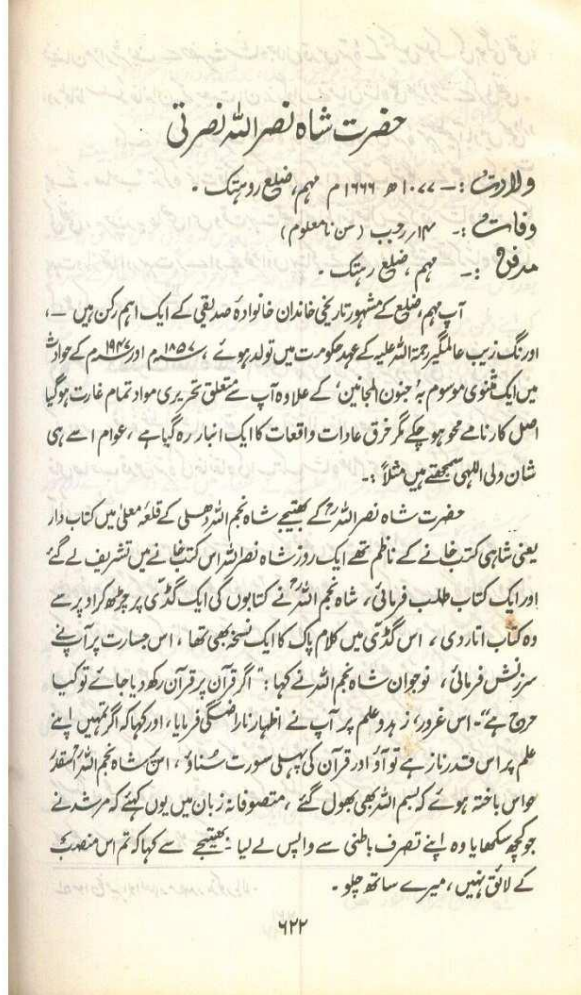 حضرت شاہ نصر اللہ نصرتی
ولادت :- ۱۰۷۷ھ ۱۶۶۶م مہم، ضلع روہتک ۔
وفات :- ۱۴؍ رجب (سن نامعلوم)
مدفن :- مہم، ضلع رہتک ۔
آپ مہم، ضلع کے مشہور تاریخی خاندان خانوادۂ صدیقی کے ایک اہم رکن ہیں ۔،
اورنگ زیب عالمگیر رحمۃ اللہ علیہ کے عہد حکومت میں تولد ہوئے ، ۱۸۵۷م اور ۱۹۴۷م کے حوادث
میں ایک مثنوی موسوم بہ ’جنون المجانین‘ کے علاوہ آپ سے متعلق تحریری مواد تمام غارت ہوگیا
اصل کارنامے محو ہوچکے مگر خرق عادات واقعات کا ایک انبار رہ گیا ہے ، عوام اسے ہی
شان ولی اللہی سمجھتے ہیں مثلاً :-
حضرت شاہ نصر اللہؒ کے بھتیجے شاہ نجم اللہ دھلی کے قلعۂ معلیٰ میں کتاب دار
یعنی شاہی کتب خانے کے ناظم تھے ایک روز شاہ نصر اللہ اس کتب خانے میں تشریف لے گئے
اور ایک کتاب طلب فرمائی ، شاہ نجم اللہؒ نے کتابوں کی ایک گڈی پر چڑھ کر اوپر سے
وہ کتاب اتار دی ، اس گڈی میں کلام پاک کا ایک نسخہ بھی تھا ، اس جسارت پر آپ نے
سرزنش فرمائی ، نوجوان شاہ نجم اللہ نے کہا : "اگر قرآن پر قرآن رکھ دیا جائے تو کیا
حرج ہے"۔ اس غرور، زہد و علم پر آپ نے اظہار ناراضگی فرمایا ، اور کہا کہ اگر تمہیں اپنے
علم پر اس قدر ناز ہے تو آؤ اور قرآن کی پہلی سورت سناؤ ، اس شاہ نجم اللہؒ اسقدر
حواس باختہ ہوئے کہ بسم اللہ بھی بھول گئے ، متصوفانہ زبان میں یوں کہئے کہ مرشد نے
جو کچھ سکھایا وہ اپنے تصرف باطنی سے واپس لے لیا : بھتیجے سے کہا کہ تم اس منصب
کے لائق نہیں ، میرے ساتھ چلو ۔
۶۲۲